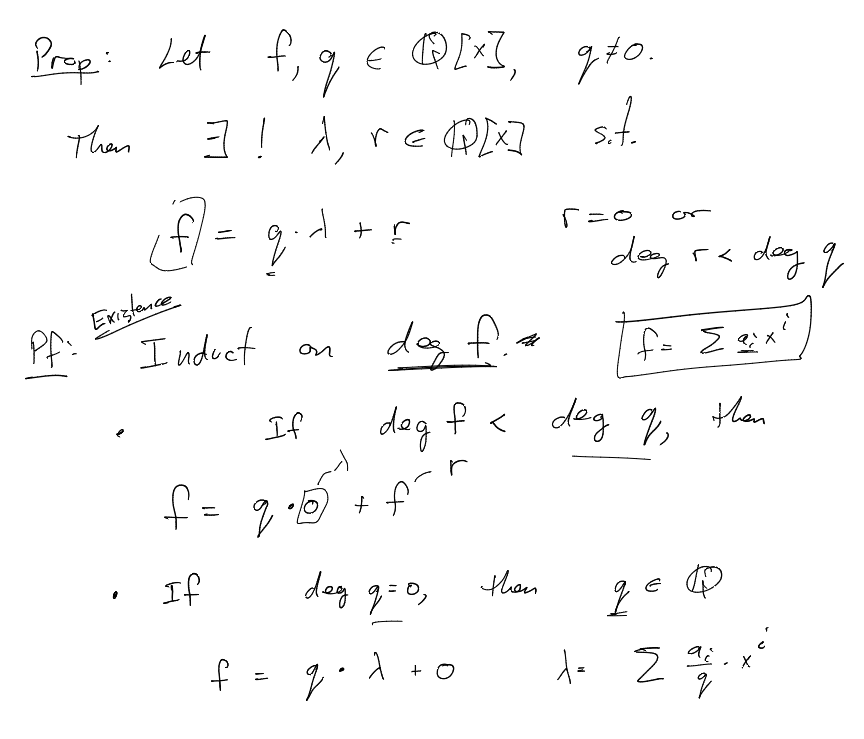 Prop: Let f, q ∈ ℚ[x], q≠0.
Then ∃! λ, r ∈ ℚ[x] s.t.
f = q·λ + r r=0 or
deg r < deg q
Existence
Pf: Induct on deg f. f = Σ aᵢxⁱ
· If deg f < deg q, then
λ r
f = q·0 + f
· If deg q=0, then q ∈ ℚ
f = q·λ + 0 λ= Σ aᵢ/q · xⁱ